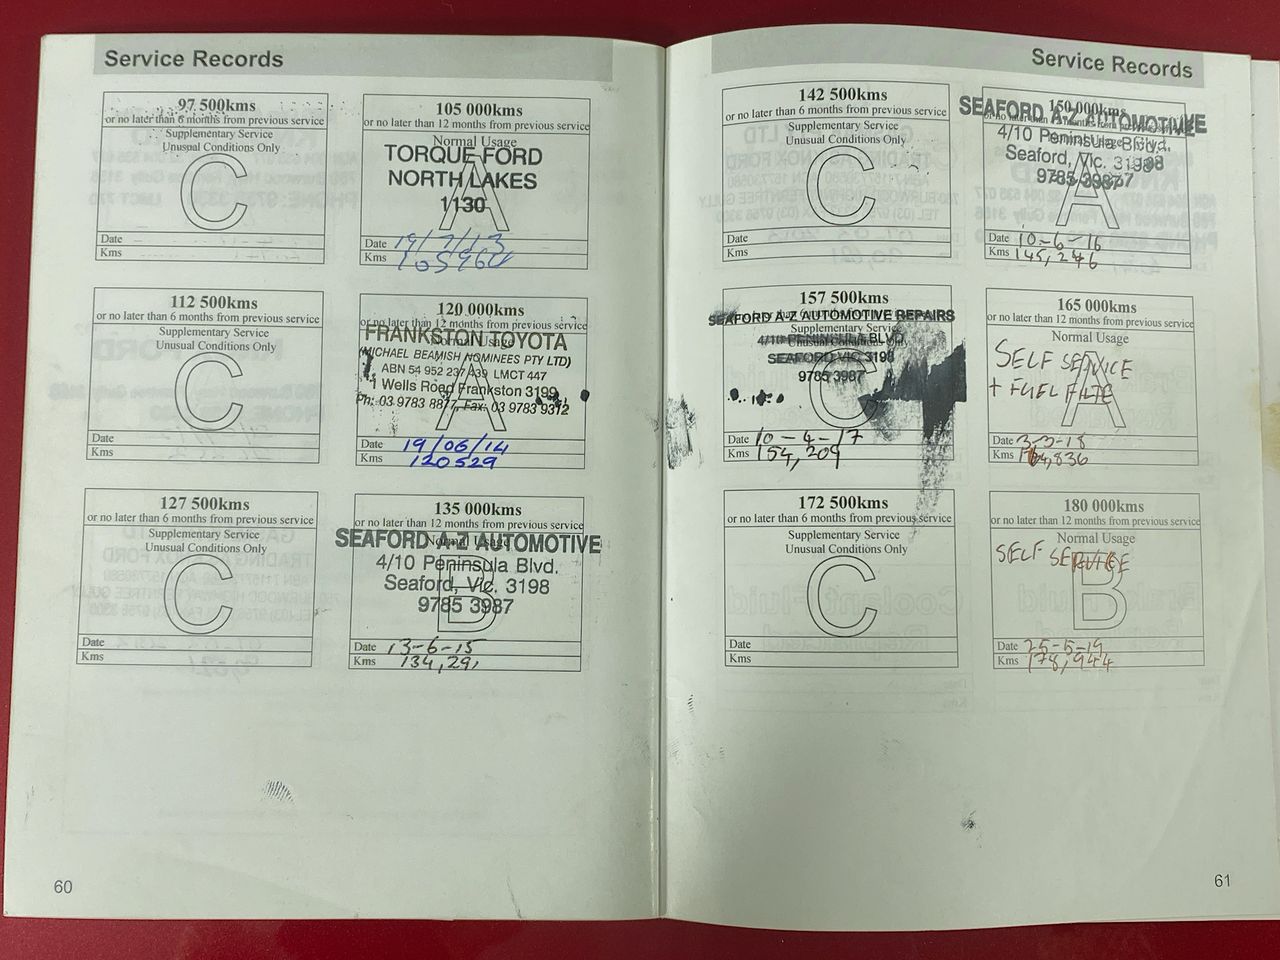 Service Records
97 500kms
or no later than 6 months from previous service
Supplementary Service
Unusual Conditions Only
C
Date
Kms
105 000kms
or no later than 12 months from previous service
Normal Usage
A
TORQUE FORD
NORTH LAKES
1130
Date 19/7/13
Kms 105960
112 500kms
or no later than 6 months from previous service
Supplementary Service
Unusual Conditions Only
C
Date
Kms
120 000kms
or no later than 12 months from previous service
Normal Usage
A
FRANKSTON TOYOTA
(MICHAEL BEAMISH NOMINEES PTY LTD)
ABN 54 952 237 439 LMCT 447
1 Wells Road Frankston 3199
Ph: 03 9783 8877, Fax: 03 9783 9312
Date 19/06/14
Kms 120529
127 500kms
or no later than 6 months from previous service
Supplementary Service
Unusual Conditions Only
C
Date
Kms
135 000kms
or no later than 12 months from previous service
Normal Usage
B
SEAFORD A-Z AUTOMOTIVE
4/10 Peninsula Blvd.
Seaford, Vic. 3198
9785 3987
Date 13-6-15
Kms 134,291
60
Service Records
142 500kms
or no later than 6 months from previous service
Supplementary Service
Unusual Conditions Only
C
Date
Kms
150 000kms
Normal Usage
A
SEAFORD A-Z AUTOMOTIVE
4/10 Peninsula Blvd,
Seaford, Vic. 3198
9785 3987
Date 10-6-16
Kms 145,246
157 500kms
Supplementary Service
Unusual Conditions Only
C
SEAFORD A-Z AUTOMOTIVE REPAIRS
4/10 PENINSULA BLVD
SEAFORD VIC 3198
9785 3987
Date 10-4-17
Kms 154,209
165 000kms
or no later than 12 months from previous service
Normal Usage
A
SELF SERVICE
+ FUEL FILTE
Date 3-3-18
Kms 164,836
172 500kms
or no later than 6 months from previous service
Supplementary Service
Unusual Conditions Only
C
Date
Kms
180 000kms
or no later than 12 months from previous service
Normal Usage
B
SELF SERVICE
Date 25-5-19
Kms 178,944
61